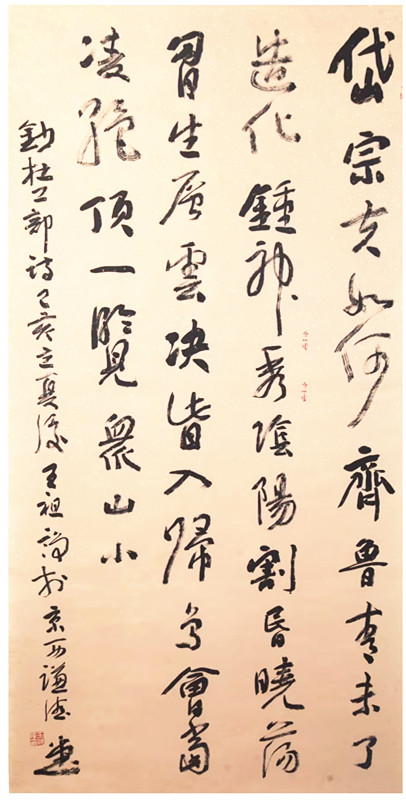 岱宗夫如何齊魯青未了
造化鍾神秀陰陽割昏曉蕩
胷生層雲决眥入歸鳥會當
凌絶頂一覽衆山小
鈔杜工部詩己亥立夏後王祖於京西謙德堂